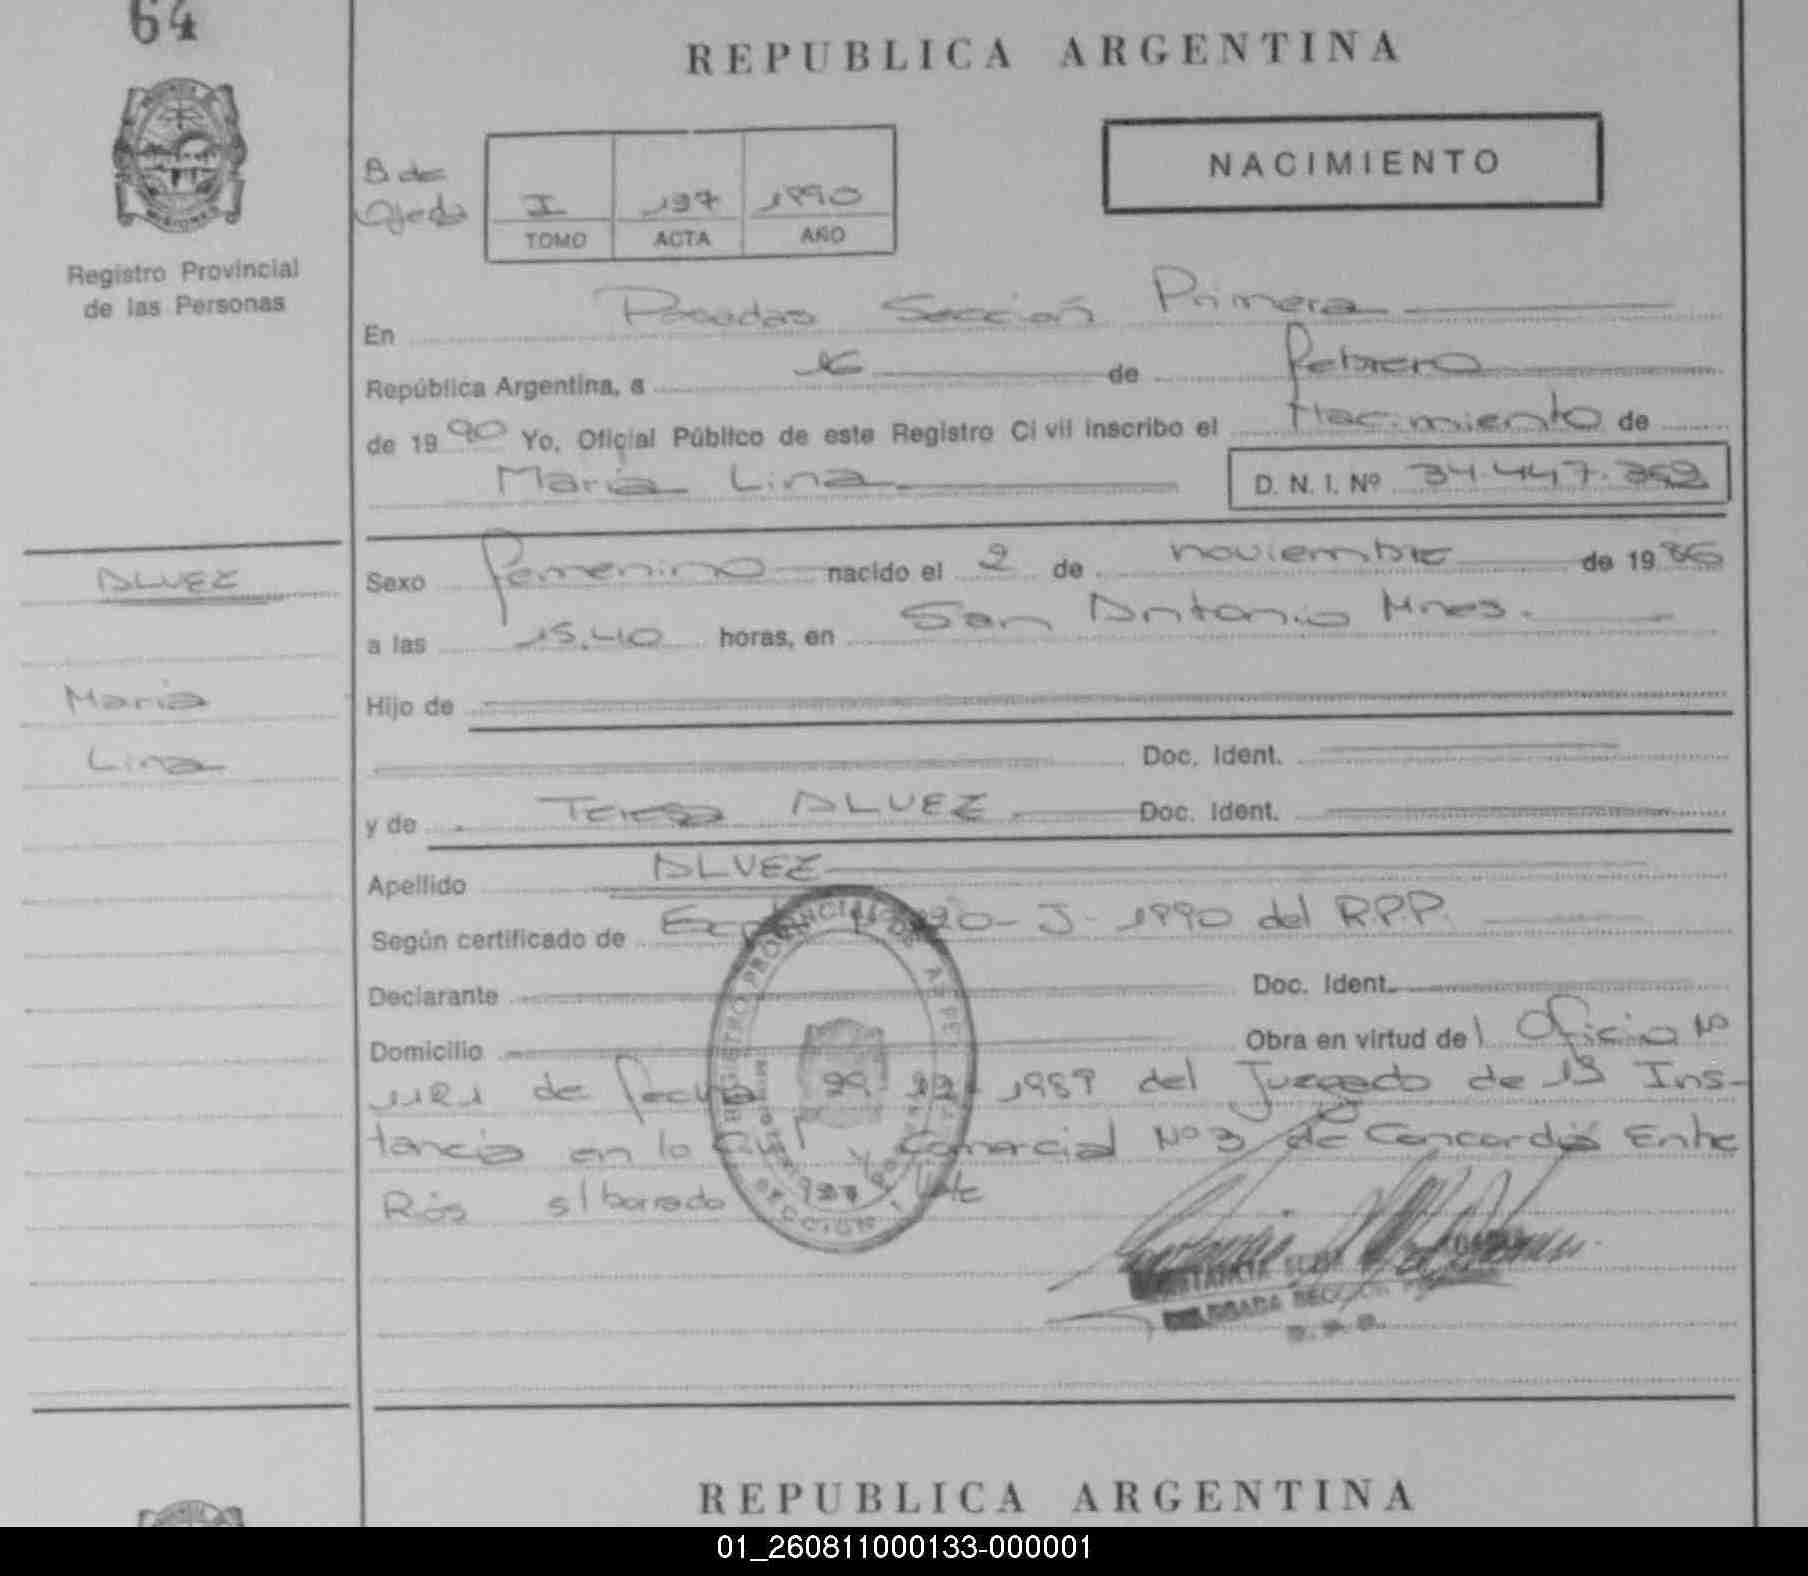 64
REPUBLICA ARGENTINA
NACIMIENTO
B de
Ojeda
I 197 1990
TOMO ACTA AÑO
Registro Provincial
de las Personas
En Posadas Sección Primera
República Argentina, a 16 de febrero
de 1990 Yo, Oficial Público de este Registro Civil inscribo el Nacimiento de
María Lina D. N. I. Nº 34.447.352
Sexo femenino nacido el 2 de noviembre de 1986
a las 15.40 horas, en San Antonio Mnes.
ALVEZ
María
Lina
Hijo de
Doc. Ident.
y de Teresa ALVEZ Doc. Ident.
Apellido ALVEZ
Según certificado de 20-J-1990 del R.P.P.
Declarante Doc. Ident.
Domicilio Obra en virtud de Oficio Nº
1121 de fecha 29 1989 del Juzgado de 1ª Ins-
tancia en lo Civil y Comercial Nº 3 de Concordia Entre
Ríos s/borrado Vale
REPUBLICA ARGENTINA
01_260811000133-000001